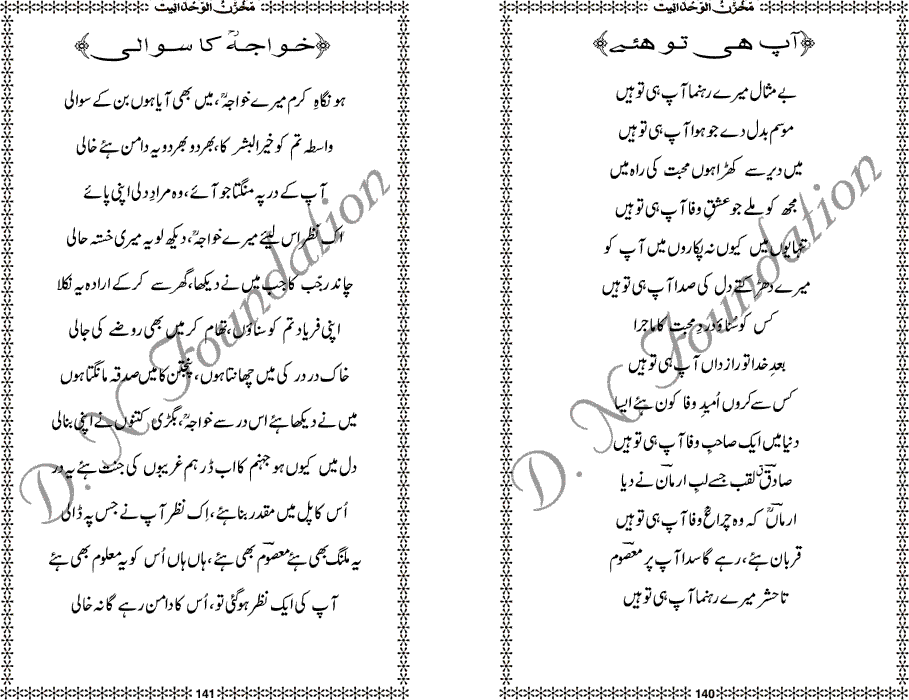 مخزن الوحدانیت
﴿آپ ھی تو ھئں﴾
بے مثال میرے رہنما آپ ہی تو ہیں
موسم بدل دے جو ہوا آپ ہی تو ہیں
میں دیر سے کھڑا ہوں محبت کی راہ میں
مجھ کو ملے جو عشقِ وفا آپ ہی تو ہیں
تنہایوں میں کیوں نہ پکاروں میں آپ کو
میرے دھڑکتے دل کی صدا آپ ہی تو ہیں
کس کو سُناؤ دردِ محبت کا ماجرا
بعدِ خدا تو رازداں آپ ہی تو ہیں
کس سے کروں اُمیدِ وفا کون ہئے ایسا
دنیا میں ایک صاحبِ وفا آپ ہی تو ہیں
صادقؔ لقب جسے لبِ ارمان نے دیا
ارماںؔ کہ وہ چراغِ وفا آپ ہی تو ہیں
قربان ہئے، رہے گا سدا آپ پر معصومؔ
تا حشر میرے رہنما آپ ہی تو ہیں
140
مخزن الوحدانیت
﴿خواجہؒ کا سوالی﴾
ہو نگاہِ کرم میرے خواجہؒ، میں بھی آیا ہوں بن کے سوالی
واسطہ تم کو خیرالبشر کا، بھر دو بھر دو یہ دامن ہئے خالی
آپ کے در پہ منگتا جو آئے، وہ مرادِ دلی اپنی پائے
اک نظر اس لیئے میرے خواجہؒ، دیکھ لو یہ میری خستہ حالی
چاند رجب کا جب میں نے دیکھا، گھر سے کر کے ارادہ یہ نکلا
اپنی فریاد تم کو سناؤں، تھام کر میں بھی روضے کی جالی
خاک در در کی میں چھانتا ہوں، پنجتن کا میں صدقہ مانگتا ہوں
میں نے دیکھا ہئے اس در سے خواجہؒ، بگڑی کتنوں نے اپنی بنالی
دل میں کیوں ہو جہنم کا اب ڈر ہم غریبوں کی جنت ہئے یہ در
اُس کا پل میں مقدر بنا ہئے، اِک نظر آپ نے جس پہ ڈالی
یہ ملنگ بھی ہئے معصومؔ بھی ہئے، ہاں ہاں اُس کو یہ معلوم بھی ہئے
آپ کی ایک نظر ہو گئی تو، اُس کا دامن رہے گا نہ خالی
141
D. N Foundation
D. N Foundation